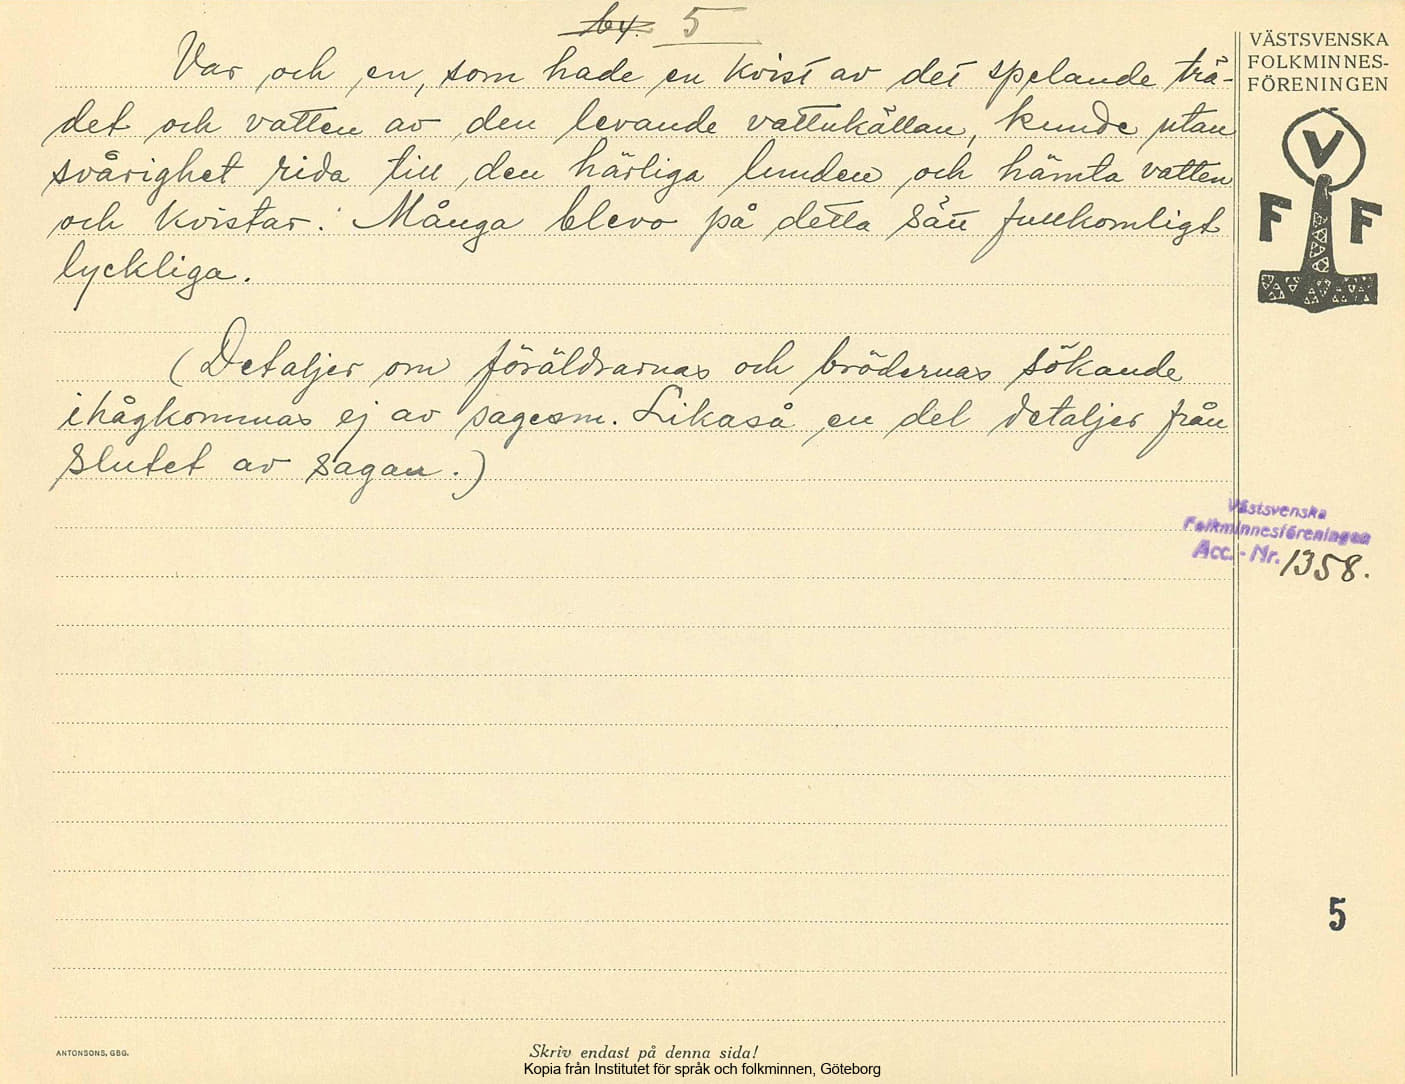 5
Var och en, som hade en kvist av det spelande trä-
det och vatten av den levande vattukällan, kunde utan
svårighet rida till den härliga lunden och hämta vatten
och kvistar. Många blevo på detta sätt fullkomligt
lyckliga.
(Detaljer om föräldrarnas och brödernas sökande
ihågkommas ej av sagesm. Likaså en del detaljer från
slutet av sagan.)
VÄSTSVENSKA
FOLKMINNES-
FÖRENINGEN
V
F F
Västsvenska
Folkminnesföreningen
Acc.-Nr. 1358.
5
ANTONSONS, GBG.
Skriv endast på denna sida!
Kopia från Institutet för språk och folkminnen, Göteborg